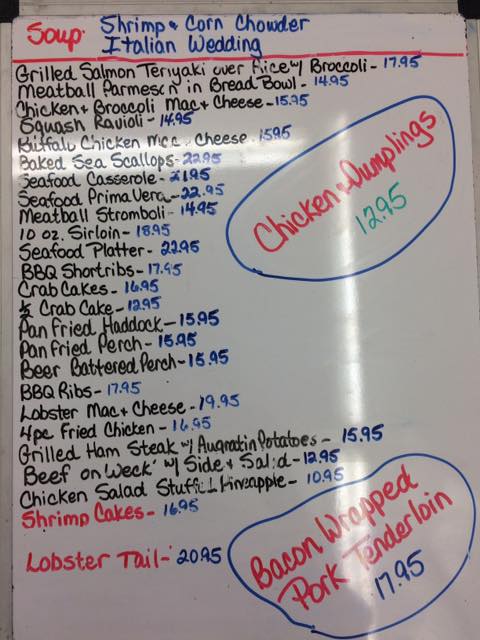 Soup- Shrimp & Corn Chowder
Italian Wedding
Grilled Salmon Teriyaki over Rice w/ Broccoli - 17.95
Meatball Parmesan in Bread Bowl - 14.95
Chicken + Broccoli Mac + Cheese - 15.95
Squash Ravioli - 14.95
Buffalo Chicken Mac + Cheese 15.95
Baked Sea Scallops - 22.95
Seafood Casserole - 21.95
Seafood Prima Vera - 22.95
Meatball Stromboli - 14.95
10 oz. Sirloin - 18.95
Seafood Platter - 22.95
BBQ Shortribs - 17.95
Crab Cakes - 16.95
½ Crab Cake - 12.95
Pan Fried Haddock - 15.95
Pan Fried Perch - 15.95
Beer Battered Perch - 15.95
BBQ Ribs - 17.95
Lobster Mac + Cheese - 19.95
4pc Fried Chicken - 16.95
Grilled Ham Steak w/ Augratin Potatoes - 15.95
Beef on 'Weck' w/ Side + Salad - 12.95
Chicken Salad Stuffed Pineapple - 10.95
Shrimp Cakes - 16.95
Lobster Tail - 20.95
Chicken & Dumplings
12.95
Bacon Wrapped
Pork Tenderloin
17.95